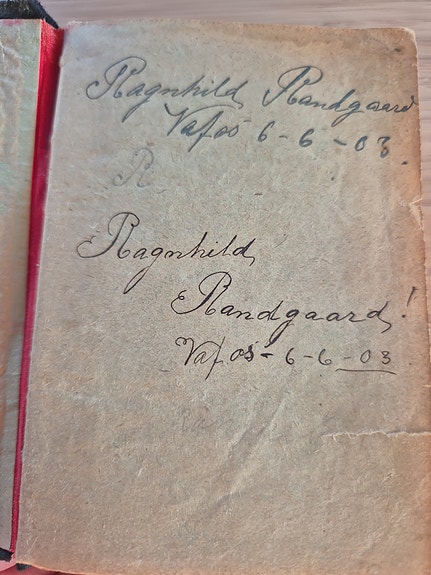 Ragnhild Randgaard
Vafos 6-6-03.
R
Ragnhild,
Randgaard,!
Vafos-6-6-03